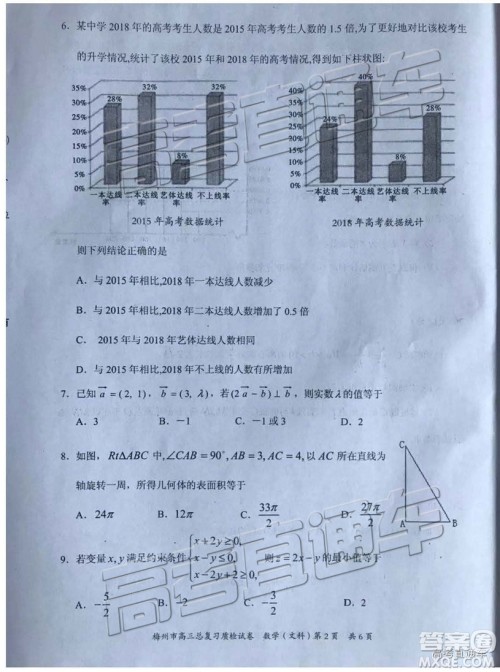 6. 某中学 2018 年的高考考生人数是 2015 年高考考生人数的 1.5 倍,为了更好地对比该校考生
的升学情况,统计了该校 2015 年和 2018 年的高考情况,得到如下柱状图:
35%
30%
25%
20%
15%
10%
5%
0%
28%
32%
8%
32%
一本达线率 二本达线率 艺体达线率 不上线率
2015 年高考数据统计
40%
35%
30%
25%
20%
15%
10%
5%
0%
24%
40%
8%
28%
一本达线率 二本达线率 艺体达线率 不上线率
2018 年高考数据统计
则下列结论正确的是
A. 与 2015 年相比,2018 年一本达线人数减少
B. 与 2015 年相比,2018 年二本达线人数增加了 0.5 倍
C. 2015 年与 2018 年艺体达线人数相同
D. 与 2015 年相比,2018 年不上线的人数有所增加
7. 已知 a = (2, 1), b = (3, λ), 若 (2a − b) ⊥ b, 则实数 λ 的值等于
A. 3 B. −1 C. −1 或 3 D. 2
8. 如图, Rt△ABC 中,∠CAB = 90°, AB = 3, AC = 4, 以 AC 所在直线为
轴旋转一周, 所得几何体的表面积等于
A. 24π B. 12π C. 33π/2 D. 27π/2
C
A
B
9. 若变量 x, y 满足约束条件 {x+2y≥0, x−y≤0, x−2y+2≥0, 则 z = 2x − y 的最小值等于
A. −5/2 B. −2 C. −3/2 D. 2
梅州市高三总复习质检试卷 数学 (文科) 第 2 页 共 6 页
高考直通车
高考直通车
高考直通车
答案圈